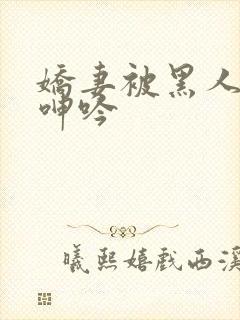 娇妻被黑人
呻吟
曦熙嬉戏西溪